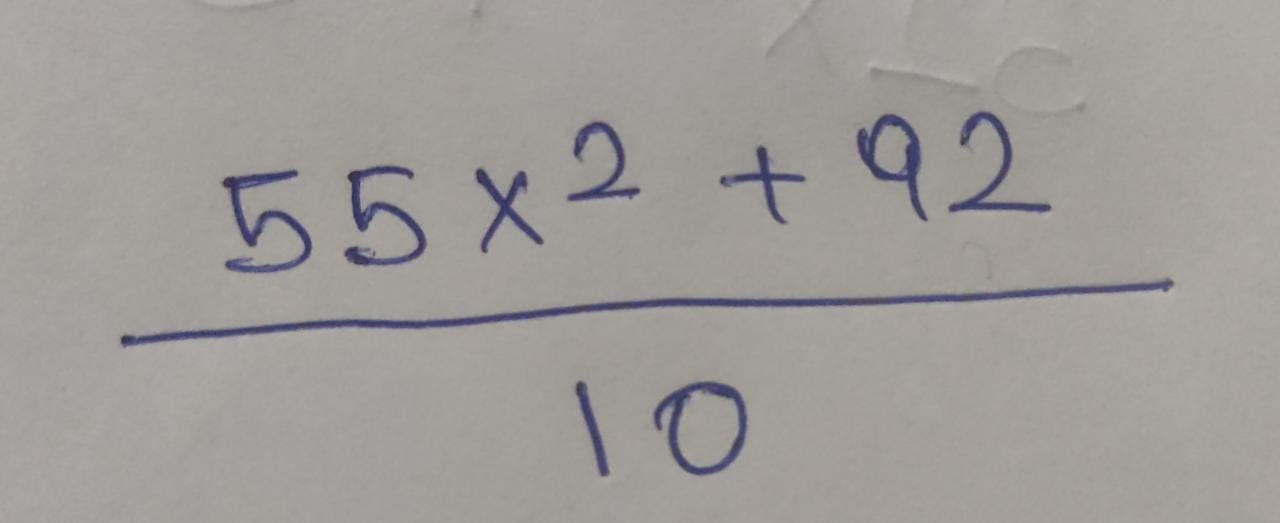 55x² + 92
10